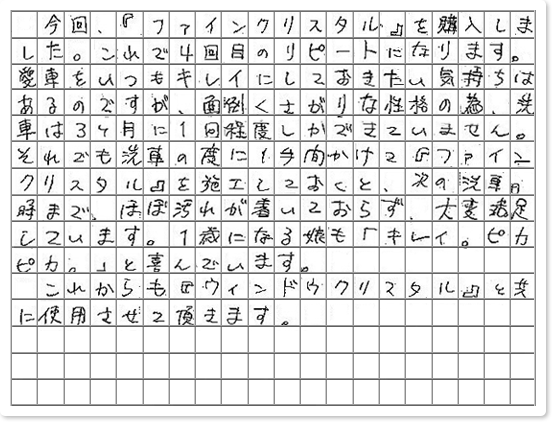 今回、『ファインクリスタル』を購入しま
した。これで4回目のリピートになります。
愛車をいつもキレイにしておきたい気持ちは
あるのですが、面倒くさがりな性格の為、洗
車は3ヶ月に1回程度しかできていません。
それでも洗車の度に1手間かけて『ファイン
クリスタル』を施工しておくと、次の洗車の
時まで、ほぼ汚れが着いておらず、大変満足
しています。1歳になる娘も「キレイ。ピカ
ピカ。」と喜んでいます。
これからも『ウィンドウクリスタル』と共
に使用させて頂きます。